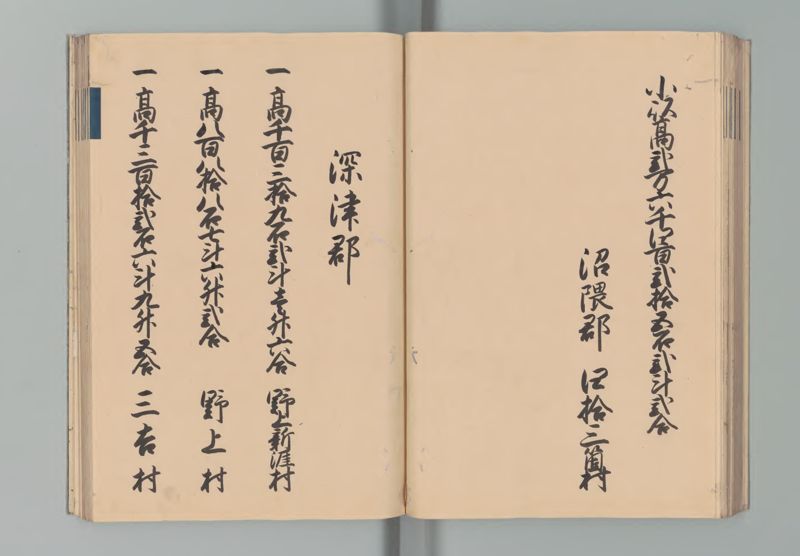 小以高弐万六千四百弐拾五石弐斗弐合
沼隈郡 四拾三箇村
深津郡
一 高千百三拾九石弐斗壱升六合 野上新涯村
一 高八百八拾八石七斗六升弐合 野上村
一 高千三百拾弐石六斗九升五合 三吉村